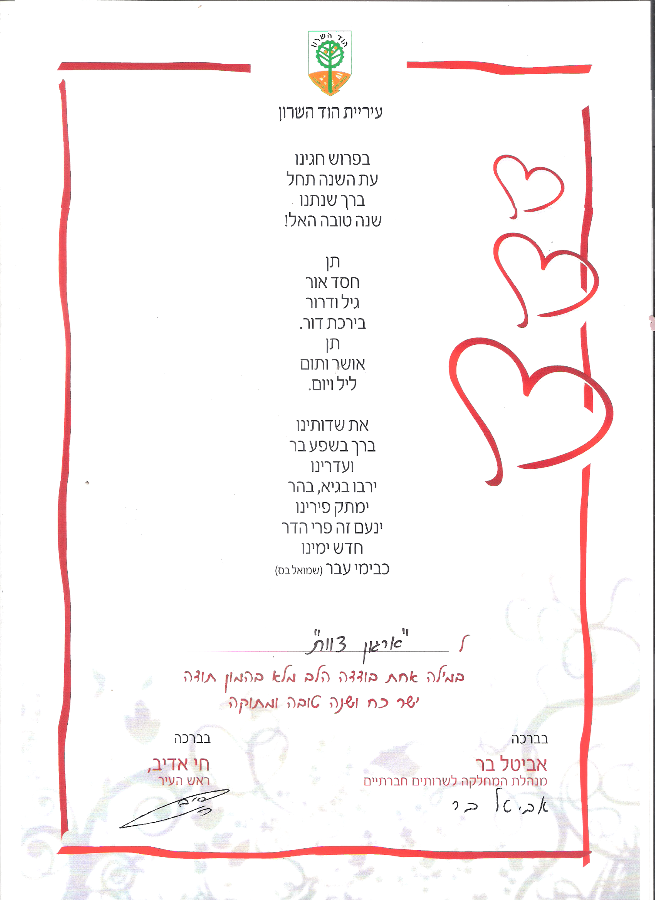 הוד השרון
עיריית הוד השרון
בפרוש חגינו
עת השנה תחל
ברך שנתנו
שנה טובה האל!
תן
חסד אור
גיל ודרור
בירכת דור.
תן
אושר ותום
ליל ויום.
את שדותינו
ברך בשפע בר
ועדרינו
ירבו בגיא, בהר
ימתק פירינו
ינעם זה פרי הדר
חדש ימינו
כבימי עבר (שמואל בס)
ל "ארגון צוות"
במילה אחת בודדה הלב מלא בהמון תודה
ישר כח ושנה טובה ומתוקה
בברכה
אביטל בר
מנהלת המחלקה לשרותים חברתיים
אביטל בר
בברכה
חי אדיב,
ראש העיר